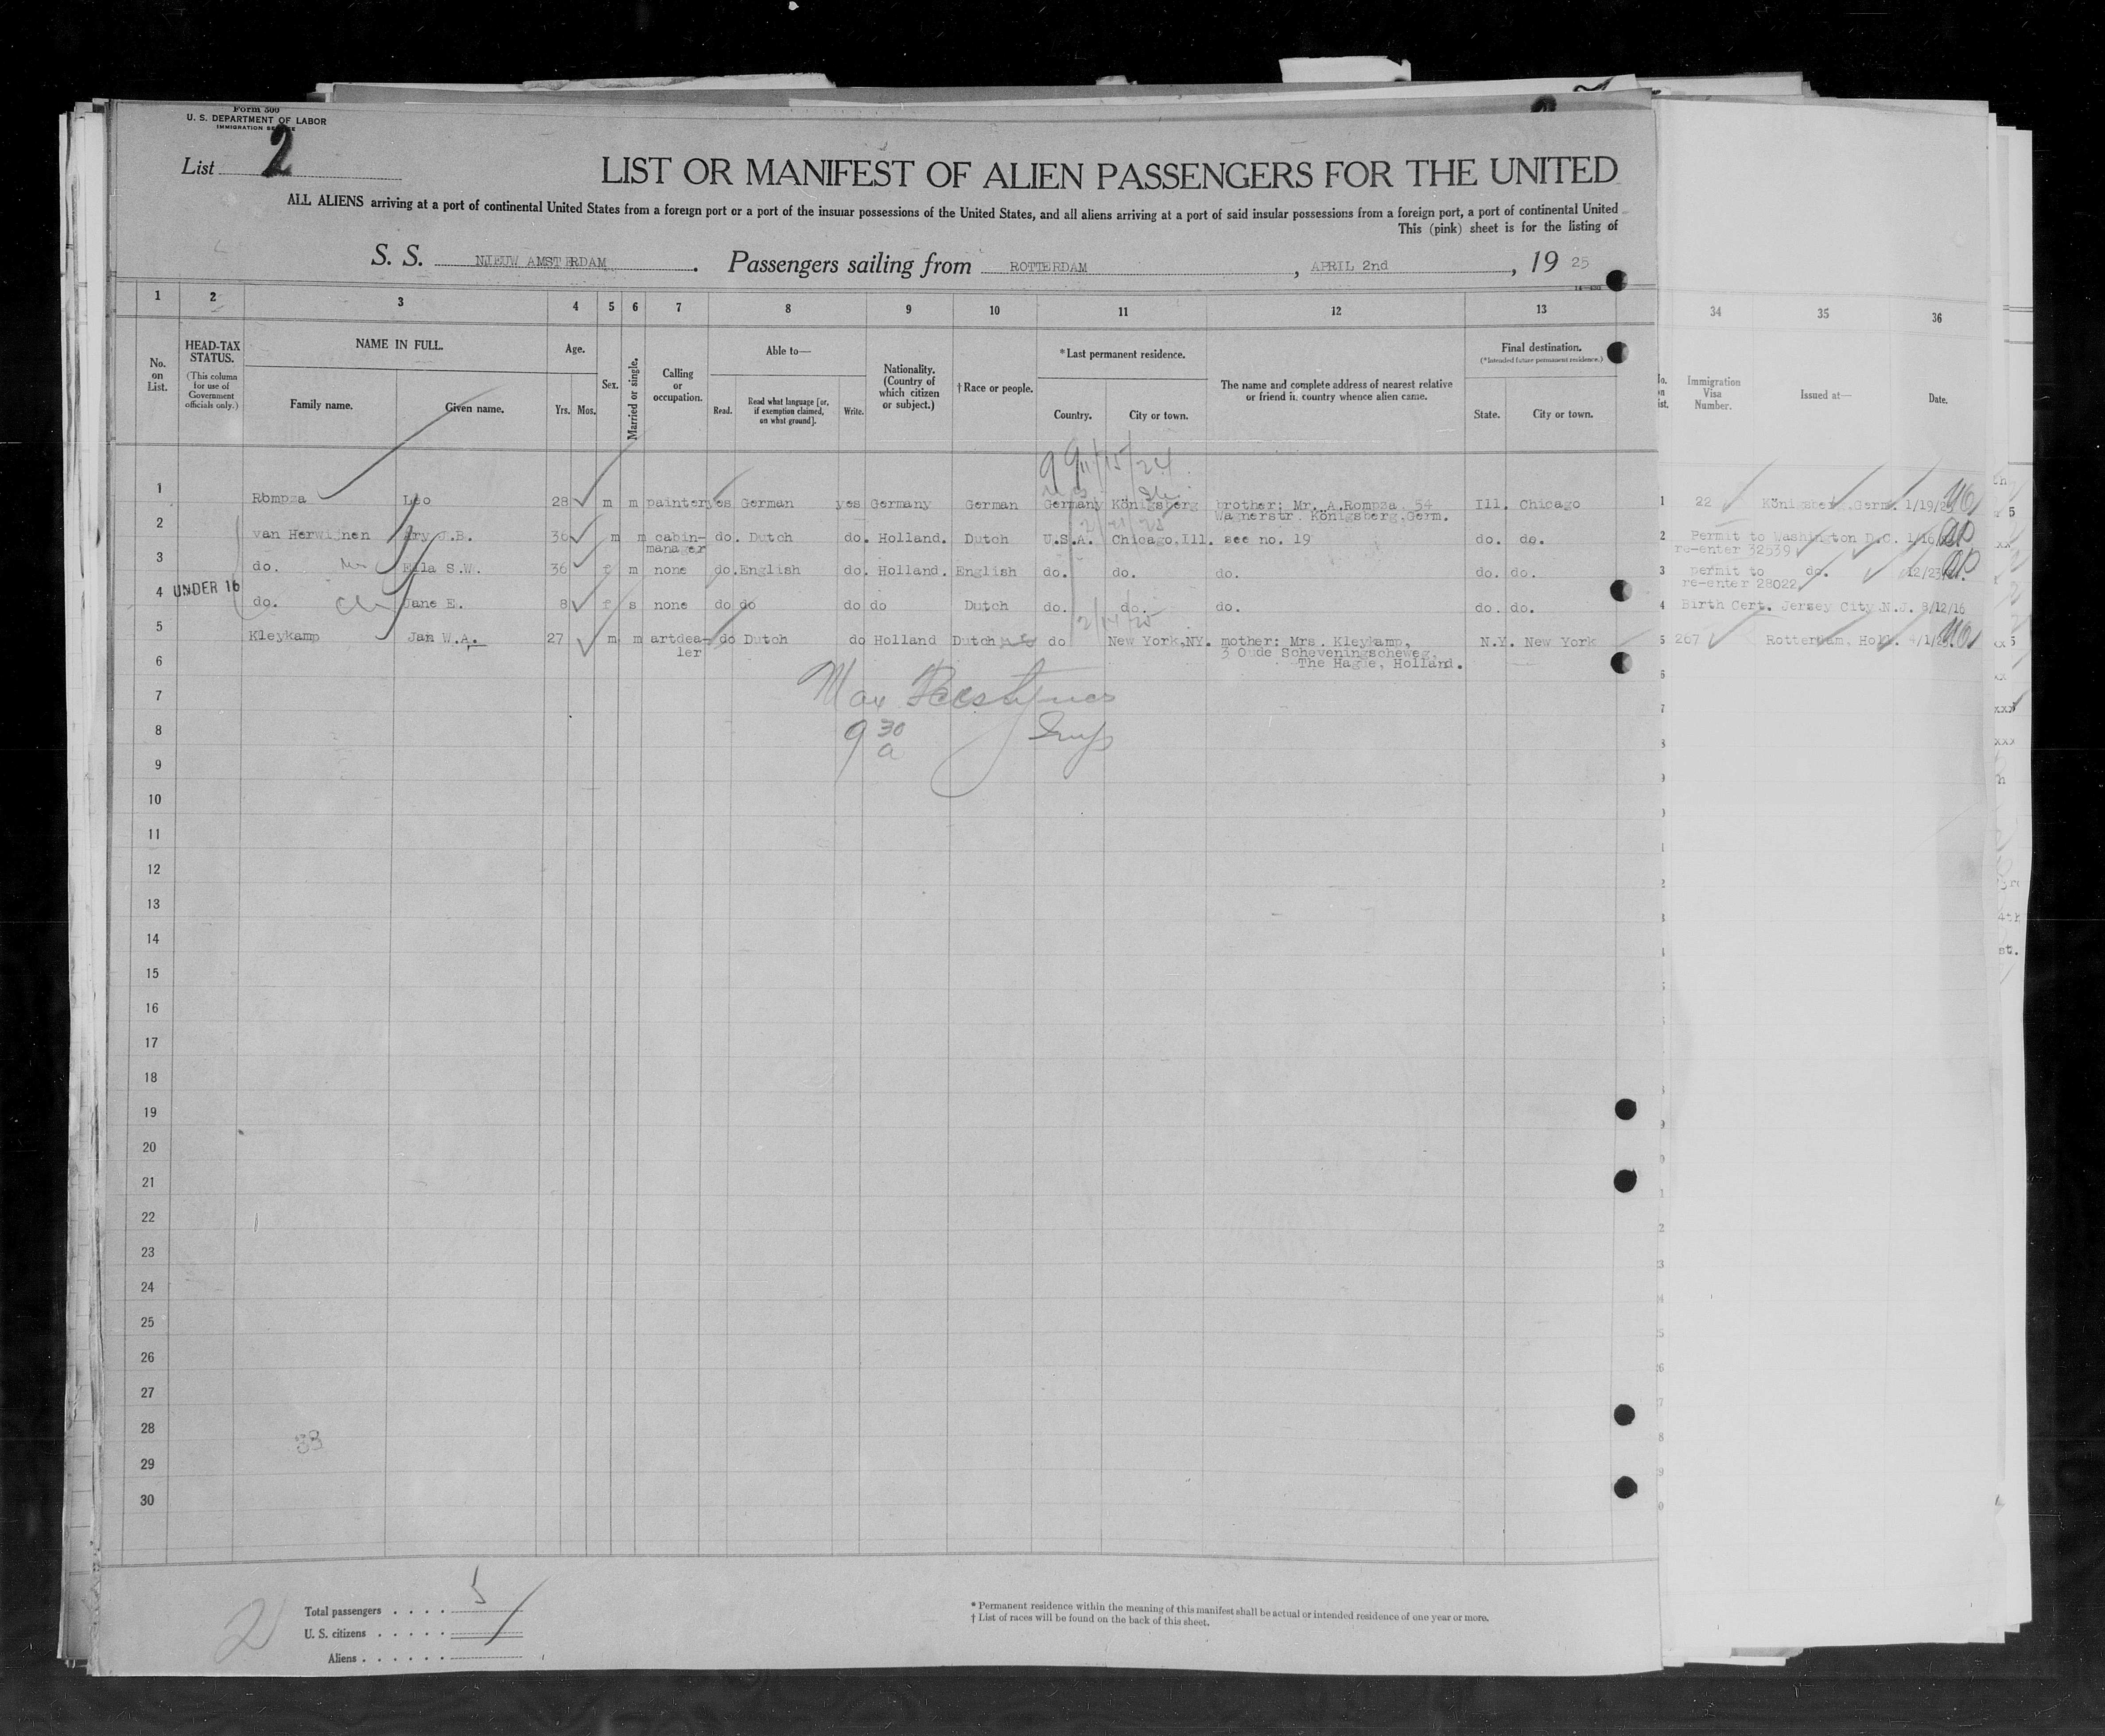 Form 500
U. S. DEPARTMENT OF LABOR
IMMIGRATION SERVICE
List 2
LIST OR MANIFEST OF ALIEN PASSENGERS FOR THE UNITED
ALL ALIENS arriving at a port of continental United States from a foreign port or a port of the insular possessions of the United States, and all aliens arriving at a port of said insular possessions from a foreign port, a port of continental United
This (pink) sheet is for the listing of
S. S. NIEUW AMSTERDAM . Passengers sailing from ROTTERDAM , APRIL 2nd , 19 25
1 2 3 4 5 6 7 8 9 10 11 12 13 34 35 36
No. on List.
HEAD-TAX STATUS.
(This column for use of Government officials only.)
NAME IN FULL.
Family name. Given name.
Age.
Yrs. Mos.
Sex.
Married or single.
Calling or occupation.
Able to—
Read. Read what language [or, if exemption claimed, on what ground]. Write.
Nationality. (Country of which citizen or subject.)
† Race or people.
* Last permanent residence.
Country. City or town.
The name and complete address of nearest relative or friend in country whence alien came.
Final destination.
(* Intended future permanent residence.)
State. City or town.
Immigration Visa Number.
Issued at—
Date.
99 11/15/24
1 Rompza Leo 28 m m painter yes German yes Germany German Germany Königsberg brother: Mr. A.Rompza, 54 Ill. Chicago 1 22 Königsberg,Germ. 1/19/25
Wagnerstr. Königsberg,Germ.
2 van Herwijnen Ary J.B. 36 m m cabin- do. Dutch do. Holland. Dutch U.S.A. Chicago,Ill. see no. 19 do. do. 2 Permit to Washington D.C. 1/16/
manager re-enter 32539
3 do. Ella S.W. 36 f m none do. English do. Holland. English do. do. do. do. do. 3 permit to do. 12/23/
re-enter 28022
UNDER 16
4 do. Jane E. 8 f s none do do do do Dutch do. do. do. do. do. 4 Birth Cert. Jersey City N.J. 8/12/16
2/14/25
5 Kleykamp Jan W.A. 27 m m artdea- do Dutch do Holland Dutch do New York,NY. mother: Mrs. Kleykamp, N.Y. New York 5 267 Rotterdam, Holl. 4/1/25.
ler 3 Oude Scheveningscheweg,
The Hague, Holland.
6
7 Max
8 9 30 a
9
10
11
12
13
14
15
16
17
18
19
20
21
22
23
24
25
26
27
28
38
29
30
2
Total passengers . . . . 5
U. S. citizens . . . . .
Aliens . . . . . .
* Permanent residence within the meaning of this manifest shall be actual or intended residence of one year or more.
† List of races will be found on the back of this sheet.